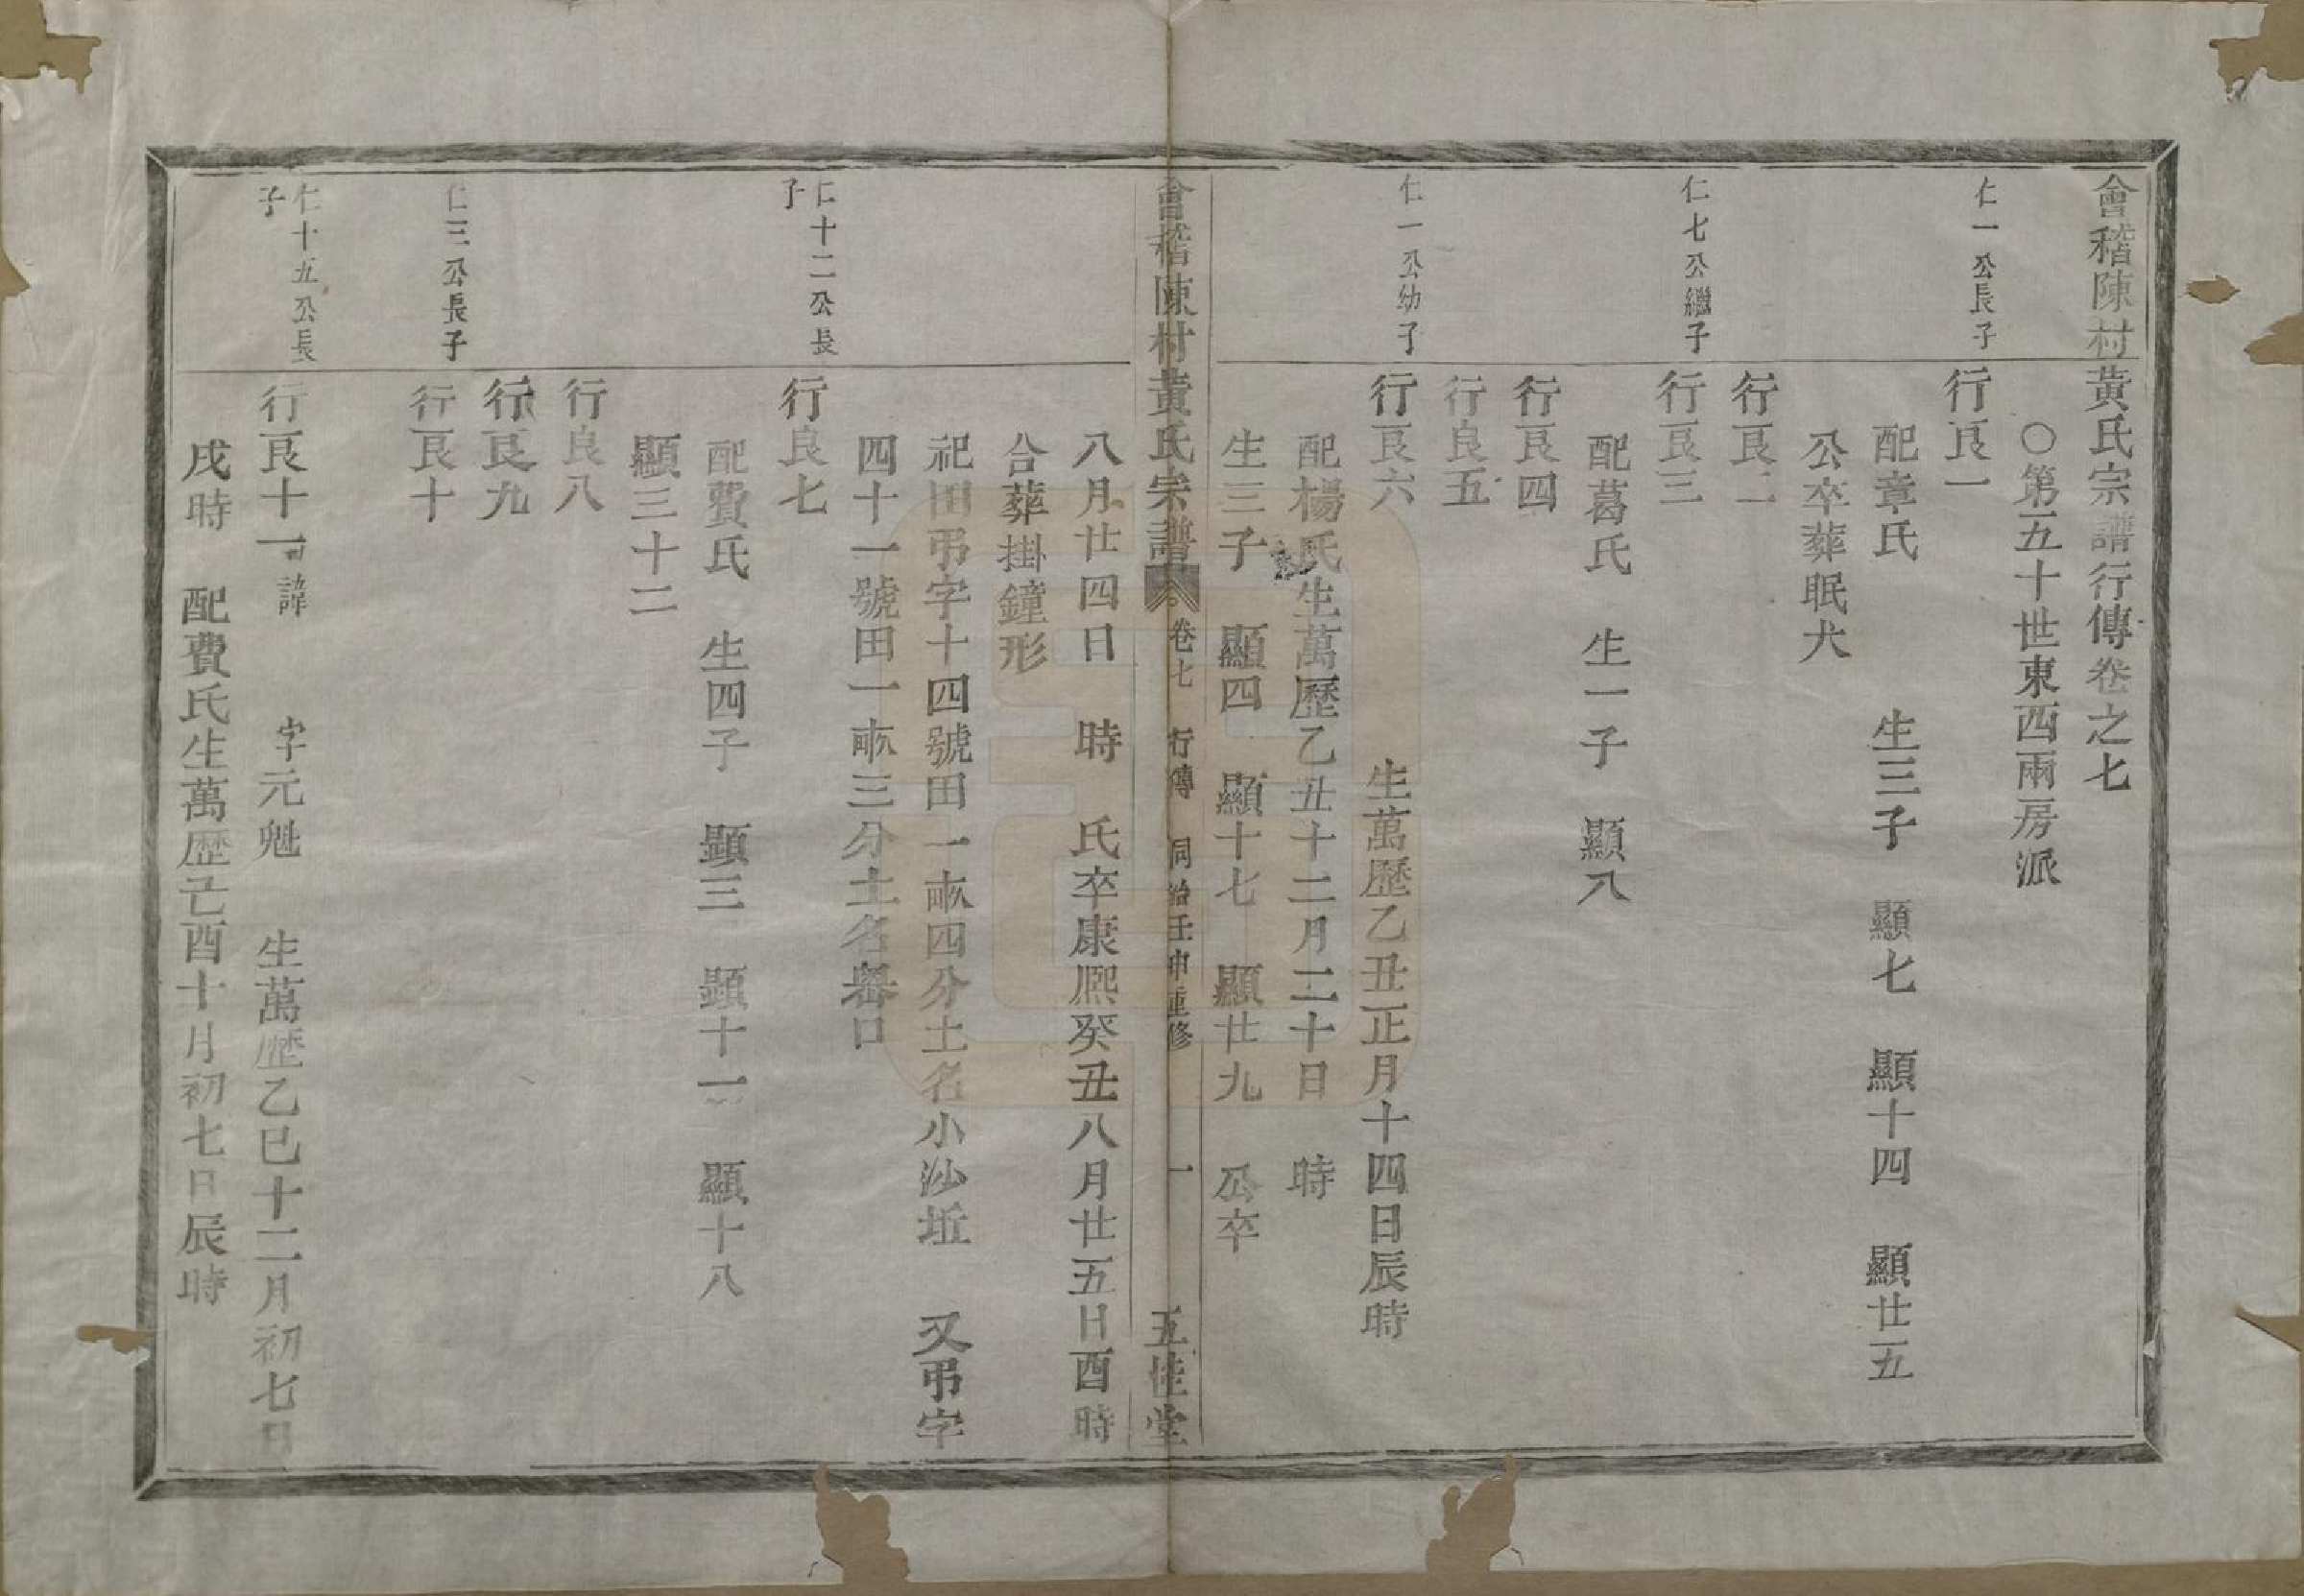 會稽陳村黃氏宗譜行傳卷之七
○第五十世東西兩房派
仁一公長子
行艮一
配章氏 生三子 顯七 顯十四 顯廿五
公卒葬眠犬
行艮二
仁七公繼子
行艮三
配葛氏 生一子 顯八
行艮四
行良五
仁一公幼子
行艮六 生萬歷乙丑正月十四日辰時
配楊氏生萬歷乙丑十二月二十日 時
生三子 顯四 顯十七 顯廿九 公卒
會稽陳村黃氏宗譜 卷七 行傳 同治壬申重修 一 五桂堂
八月廿四日 時 氏卒康熈癸丑八月廿五日酉時
合葬掛鐘形
祀田弔字十四號田一畝四分土名小沙坵 又弔字
四十一號田一畝三分土名嶴口
仁十二公長子
行良七
配費氏 生四子 顕三 顕十一 顯十八
顯三十二
行良八
行艮九
仁三公長子
行艮十
仁十五公長子
行艮十一 諱 字元魁 生萬歷乙巳十二月初七日
戌時 配費氏生萬歷己酉十月初七日辰時